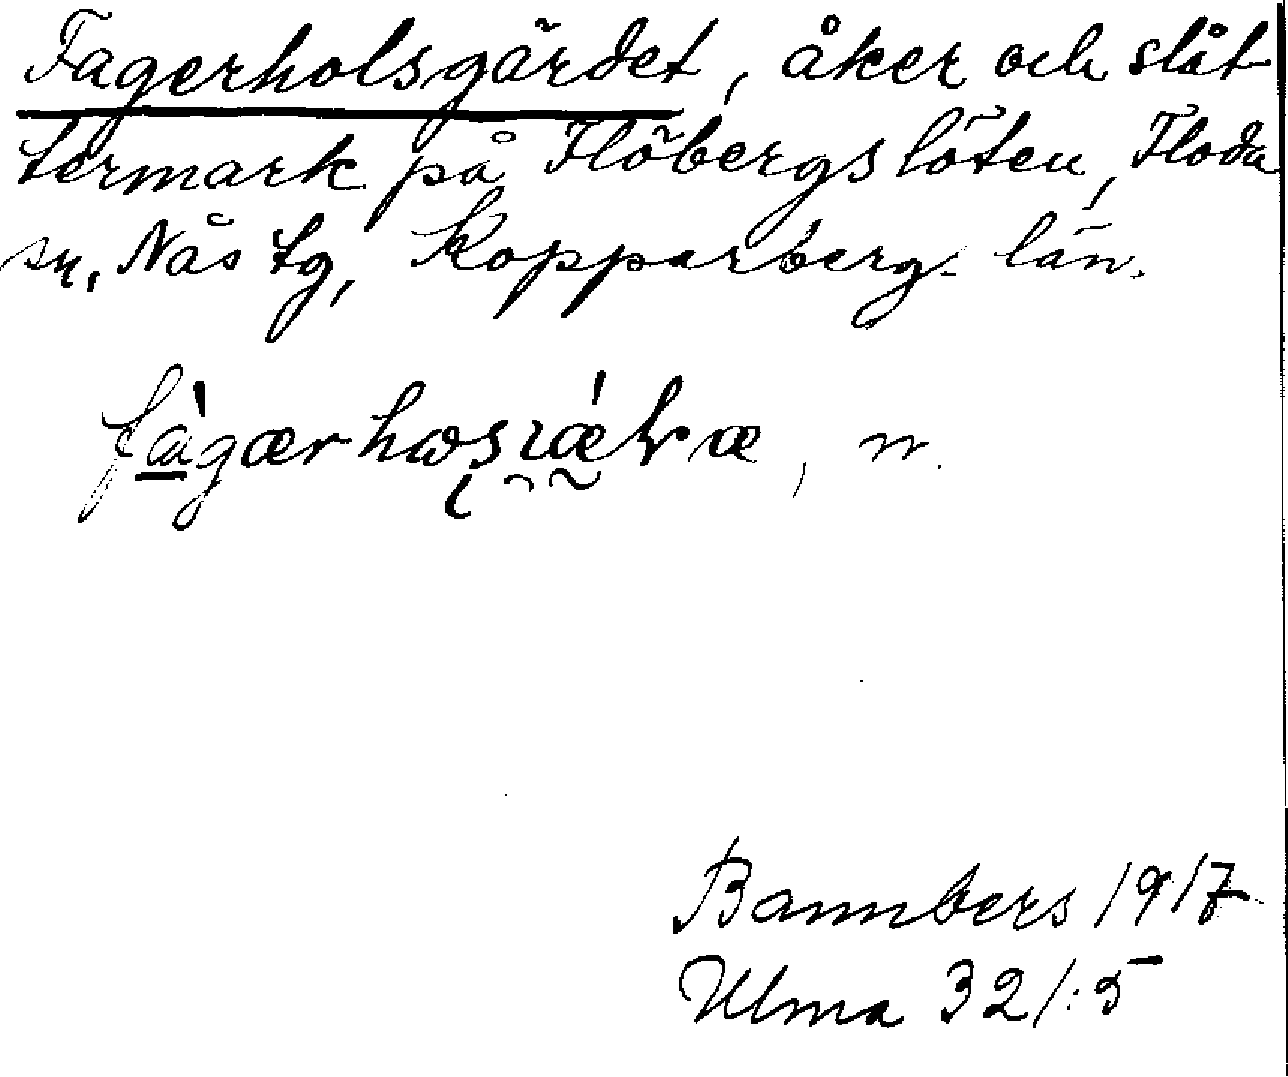 Fagerholsgärdet, åker och slåt
termark på Flöbergslöten, Floda
sn, Nås tg, Kopparberg- län.
n.
Bannbers 1917
Ulma 32/:5